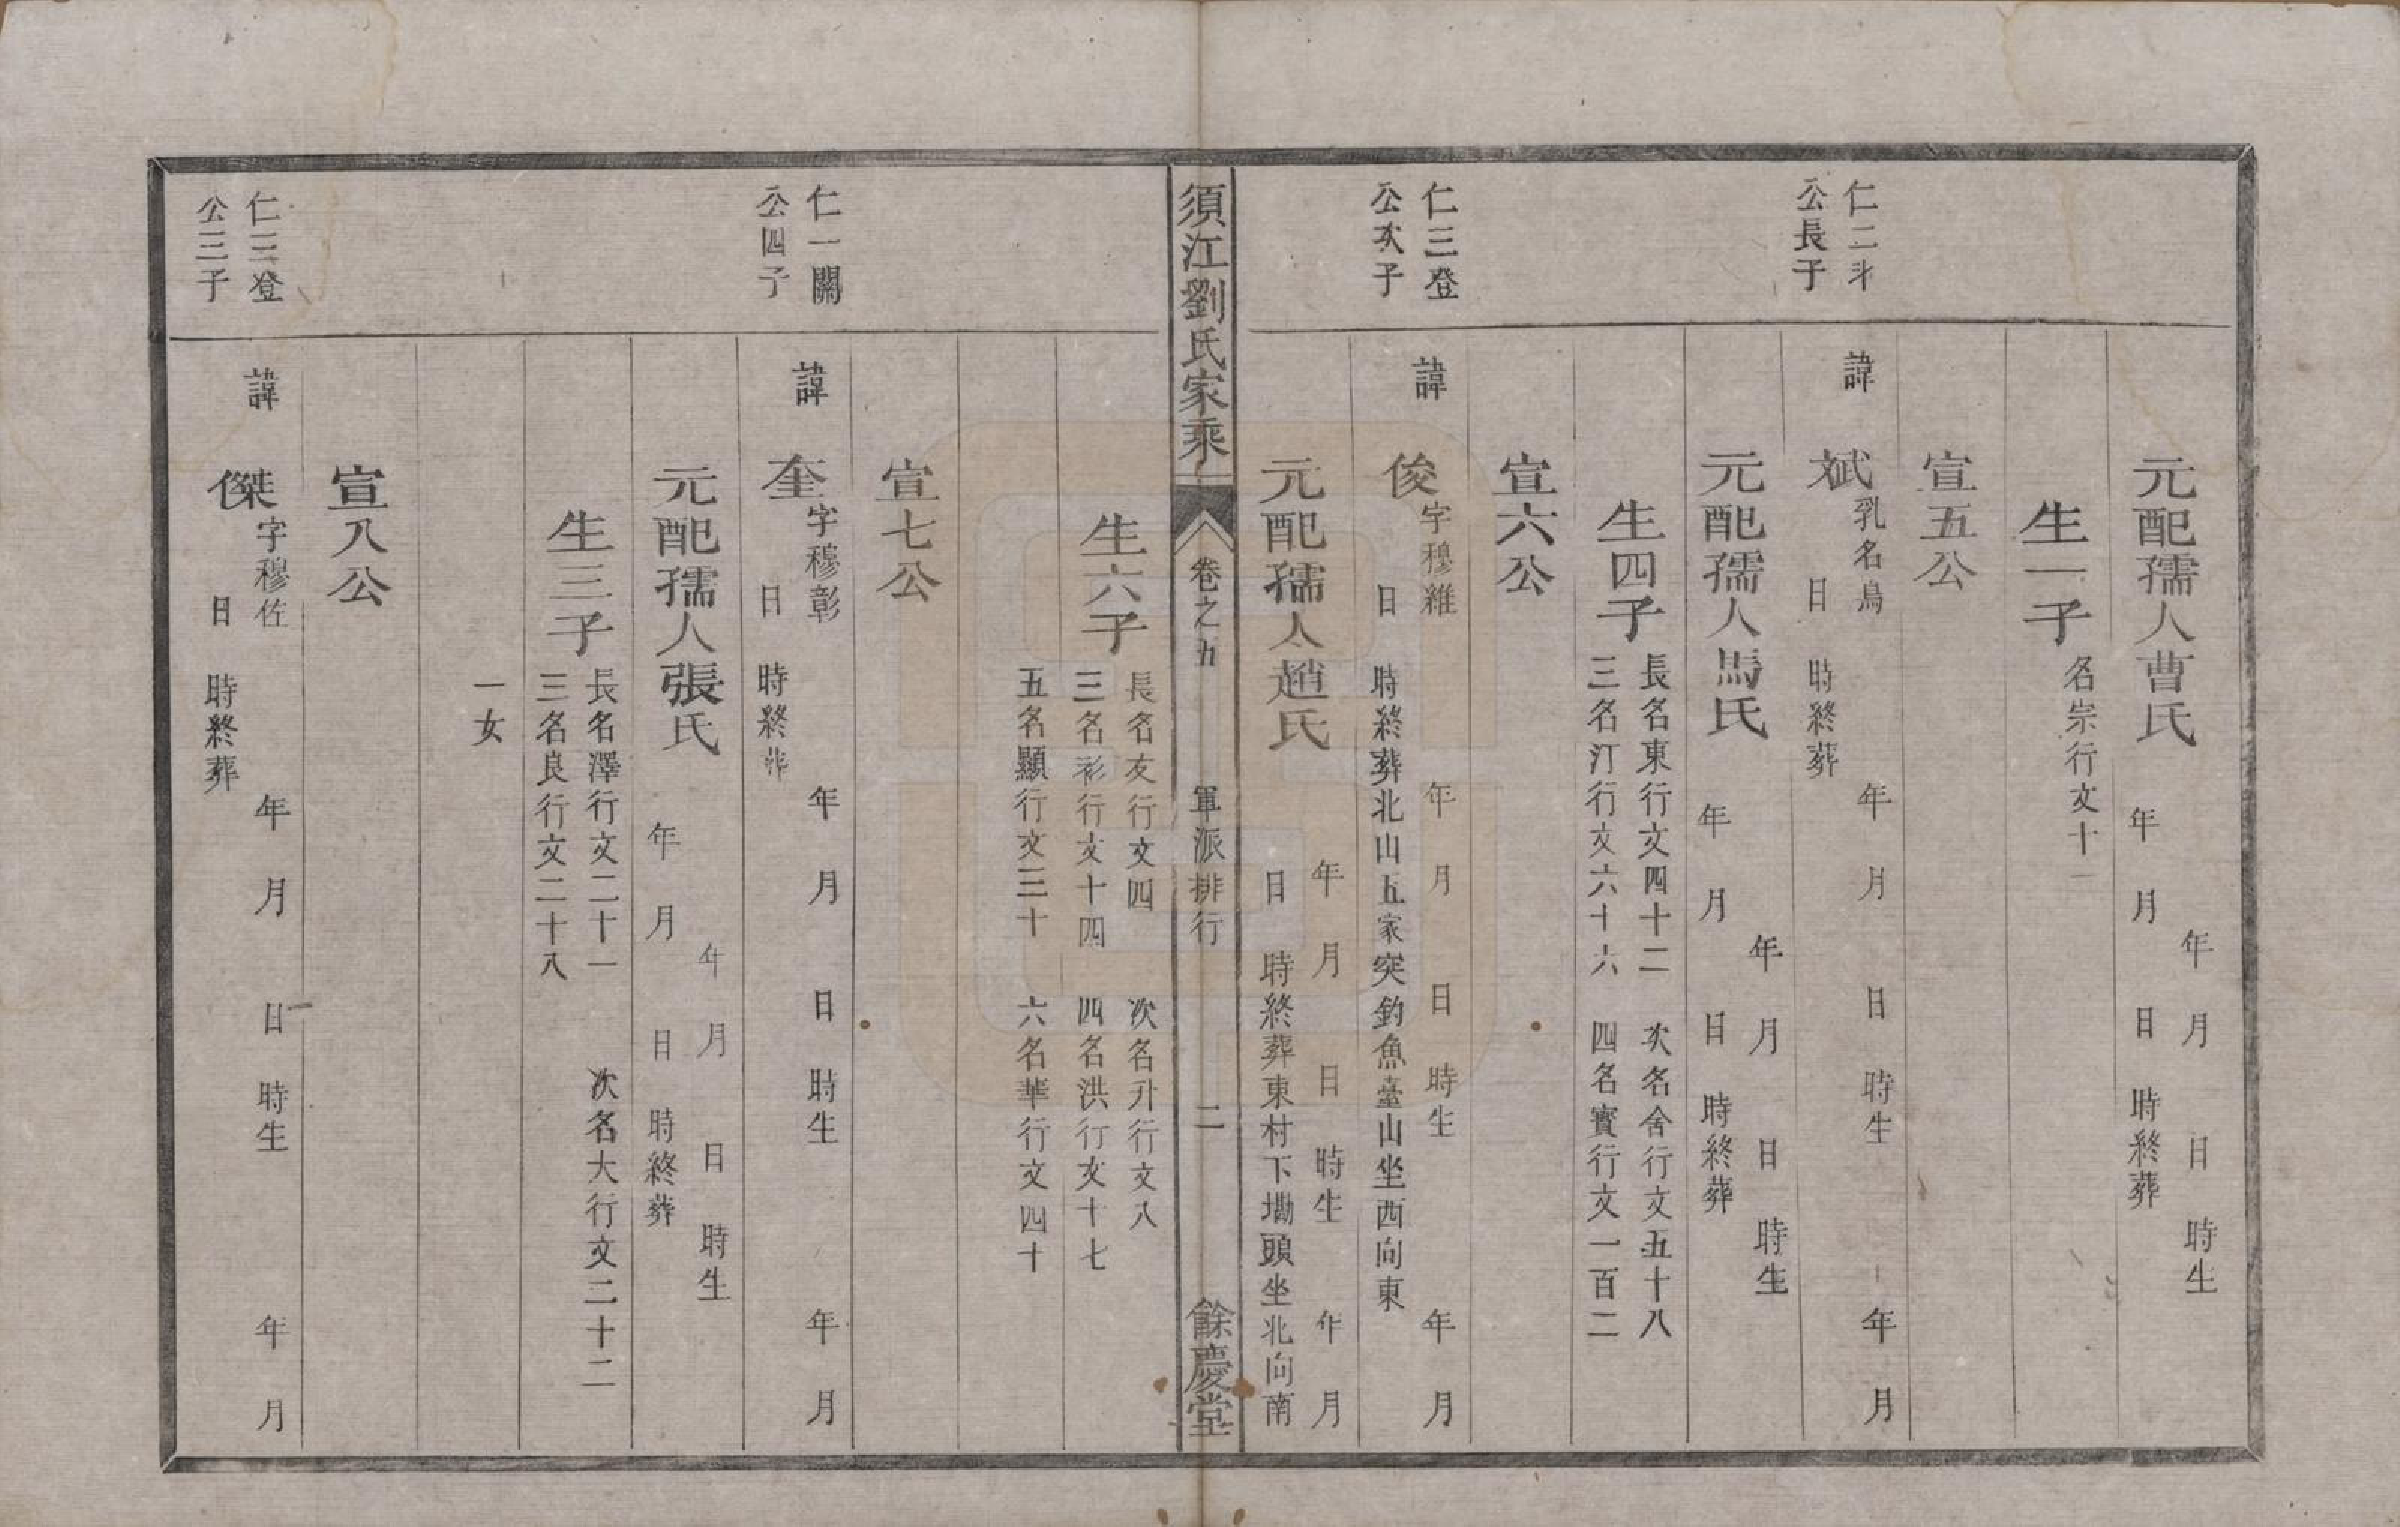 元配孺人曹氏
年月日時生
年月日時終葬
生一子
名宗行文十一
宣五公
仁二斗
公長子
諱斌
乳名鳥
年月日時生
年月
日時終葬
元配孺人馬氏
年月日時生
年月日時終葬
生四子
長名東行文四十二
次名舍行文五十八
三名汀行文六十六
四名實行文一百二
宣六公
仁三登
公次子
諱俊
字穆維
年月日時生
年月
日時終葬北山五家突釣魚臺山坐西向東
元配孺人趙氏
年月日時生
年月
日時終葬東村下墈頭坐北向南
須江劉氏家乘
卷之五
軍派排行
二
餘慶堂
生六子
長名友行文四
次名升行文八
三名彩行文十四
四名洪行文十七
五名顯行文三十
六名華行文四十
宣七公
仁一關
公四子
諱奎
字穆彰
年月日時生
年月
日時終葬
元配孺人張氏
年月日時生
年月日時終葬
生三子
長名澤行文二十一
次名大行文二十二
三名良行文二十八
一女
宣八公
仁三登
公三子
諱傑
字穆佐
年月日時生
年月
日時終葬